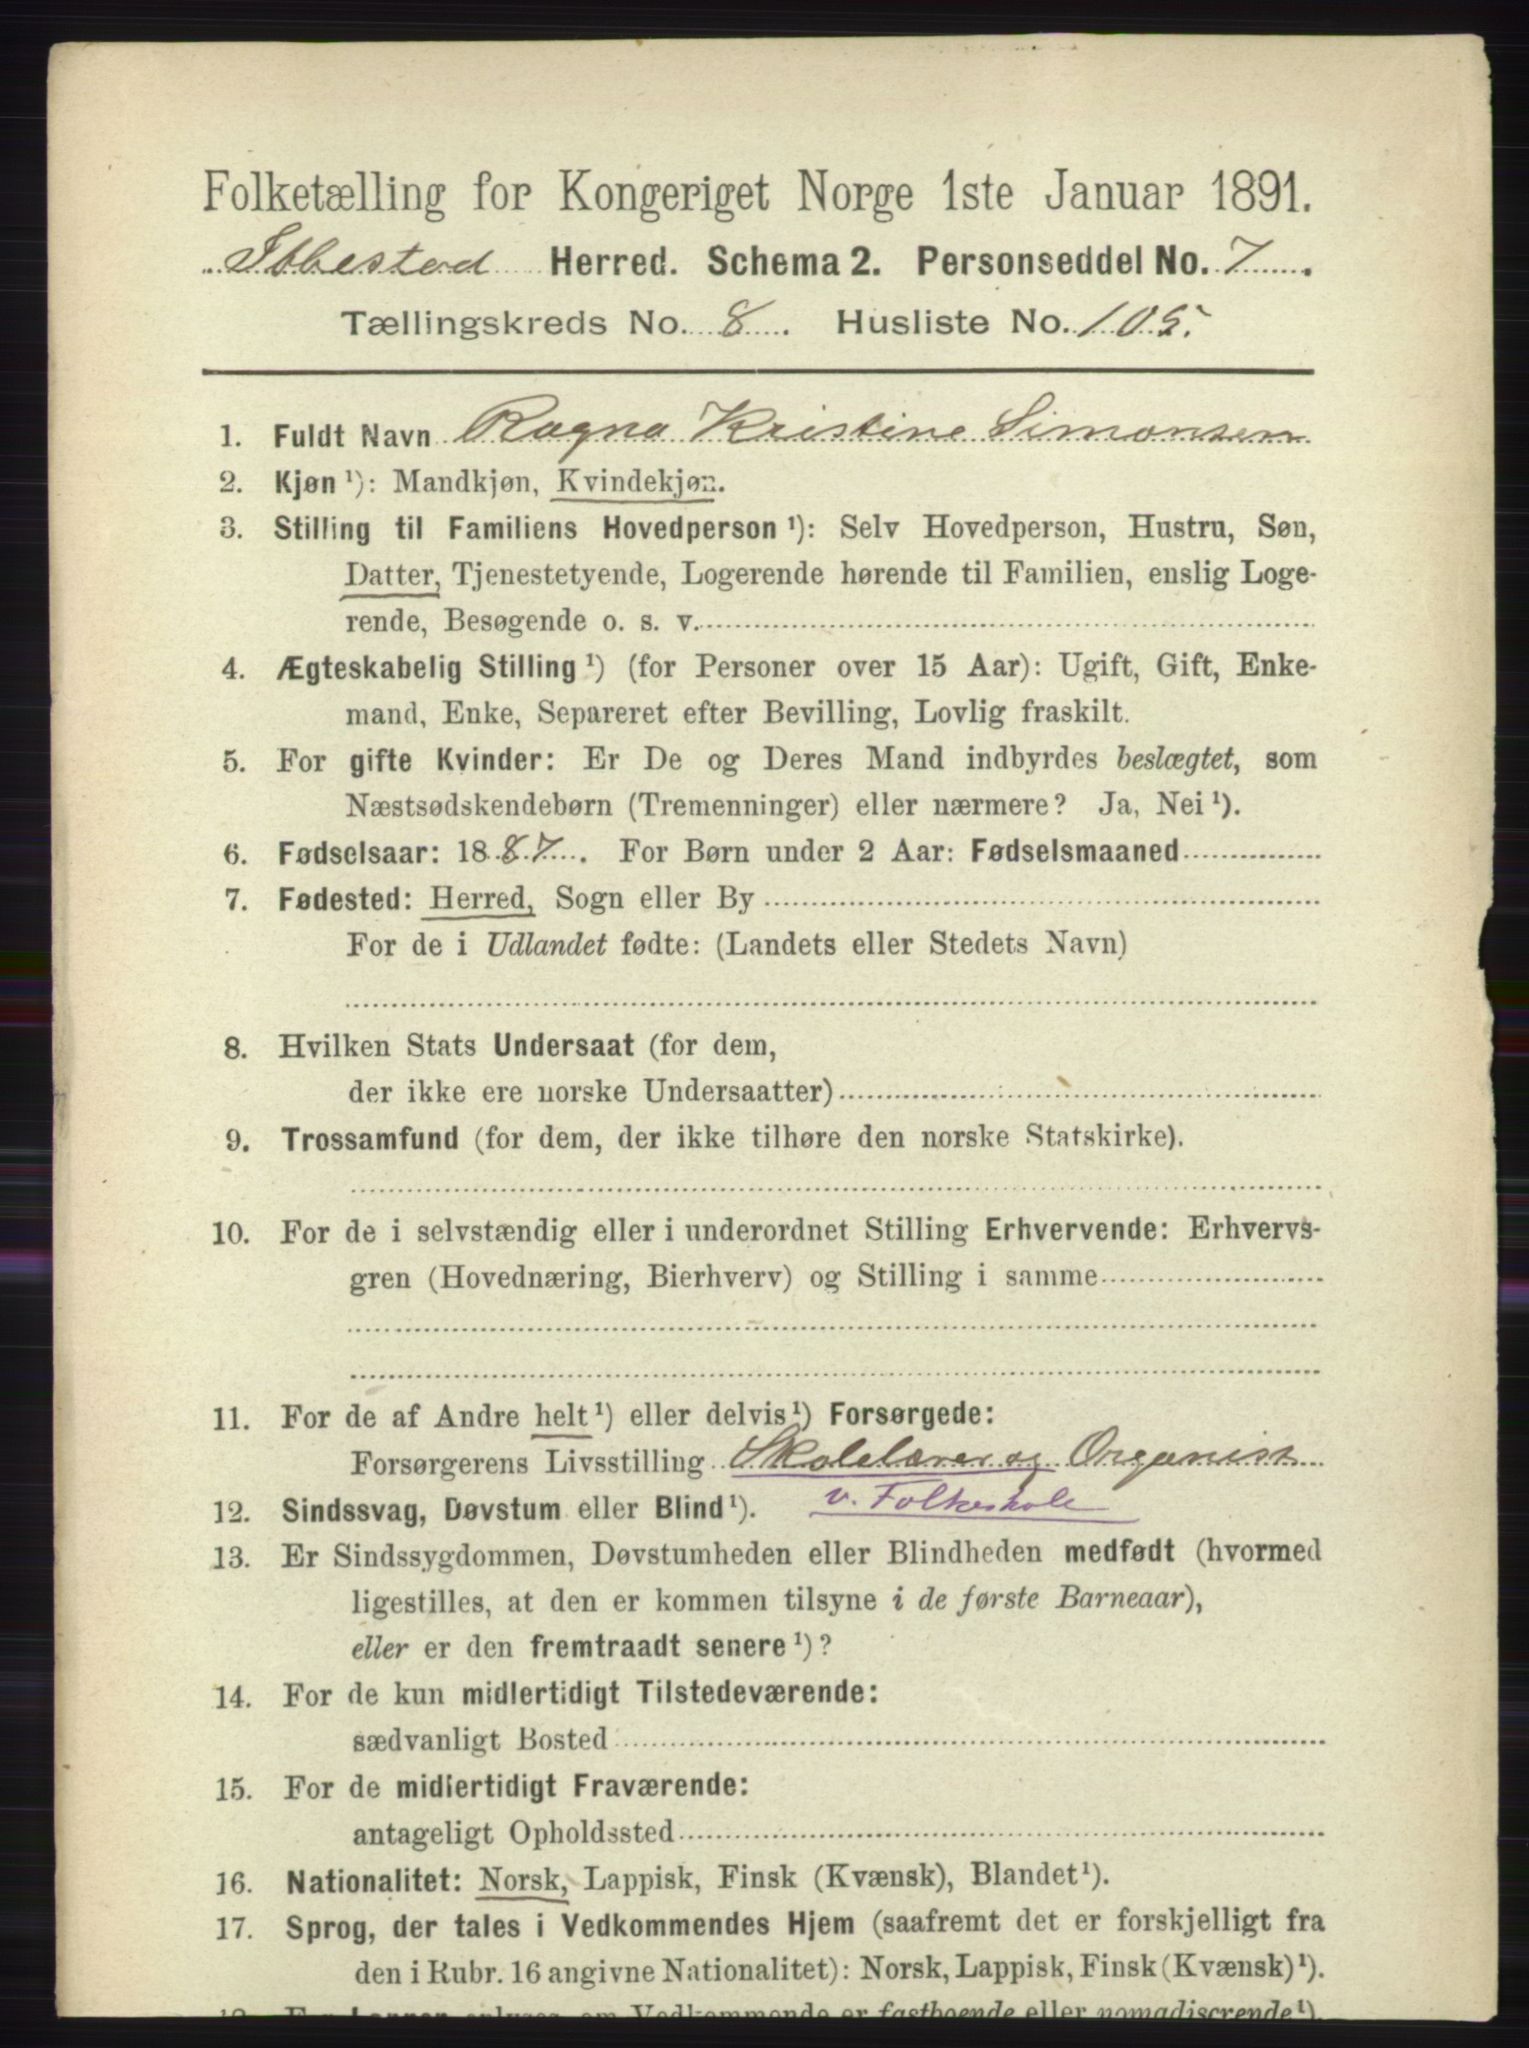 Folketælling for Kongeriget Norge 1ste Januar 1891.
Ibbestad Herred. Schema 2. Personseddel No. 7.
Tællingskreds No. 8. Husliste No. 105.
1. Fuldt Navn Ragna Kristine Simonsen
2. Kjøn ¹): Mandkjøn, Kvindekjøn.
3. Stilling til Familiens Hovedperson ¹): Selv Hovedperson, Hustru, Søn,
Datter, Tjenestetyende, Logerende hørende til Familien, enslig Loge-
rende, Besøgende o. s. v.
4. Ægteskabelig Stilling ¹) (for Personer over 15 Aar): Ugift, Gift, Enke-
mand, Enke, Separeret efter Bevilling, Lovlig fraskilt.
5. For gifte Kvinder: Er De og Deres Mand indbyrdes beslægtet, som
Næstsødskendebørn (Tremenninger) eller nærmere? Ja, Nei ¹).
6. Fødselsaar: 1887. For Børn under 2 Aar: Fødselsmaaned
7. Fødested: Herred, Sogn eller By
For de i Udlandet fødte: (Landets eller Stedets Navn)
8. Hvilken Stats Undersaat (for dem,
der ikke ere norske Undersaatter)
9. Trossamfund (for dem, der ikke tilhøre den norske Statskirke).
10. For de i selvstændig eller i underordnet Stilling Erhvervende: Erhvervs-
gren (Hovednæring, Bierhverv) og Stilling i samme
11. For de af Andre helt ¹) eller delvis ¹) Forsørgede:
Forsørgerens Livsstilling Skolelærer og Organist
v. Folkeskole
12. Sindssvag, Døvstum eller Blind ¹).
13. Er Sindssygdommen, Døvstumheden eller Blindheden medfødt (hvormed
ligestilles, at den er kommen tilsyne i de første Barneaar),
eller er den fremtraadt senere ¹)?
14. For de kun midlertidigt Tilstedeværende:
sædvanligt Bosted
15. For de midlertidigt Fraværende:
antageligt Opholdssted
16. Nationalitet: Norsk, Lappisk, Finsk (Kvænsk), Blandet ¹).
17. Sprog, der tales i Vedkommendes Hjem (saafremt det er forskjelligt fra
den i Rubr. 16 angivne Nationalitet): Norsk, Lappisk, Finsk (Kvænsk) ¹).
om Vedkommende er fastboende eller nomadiserende ¹)